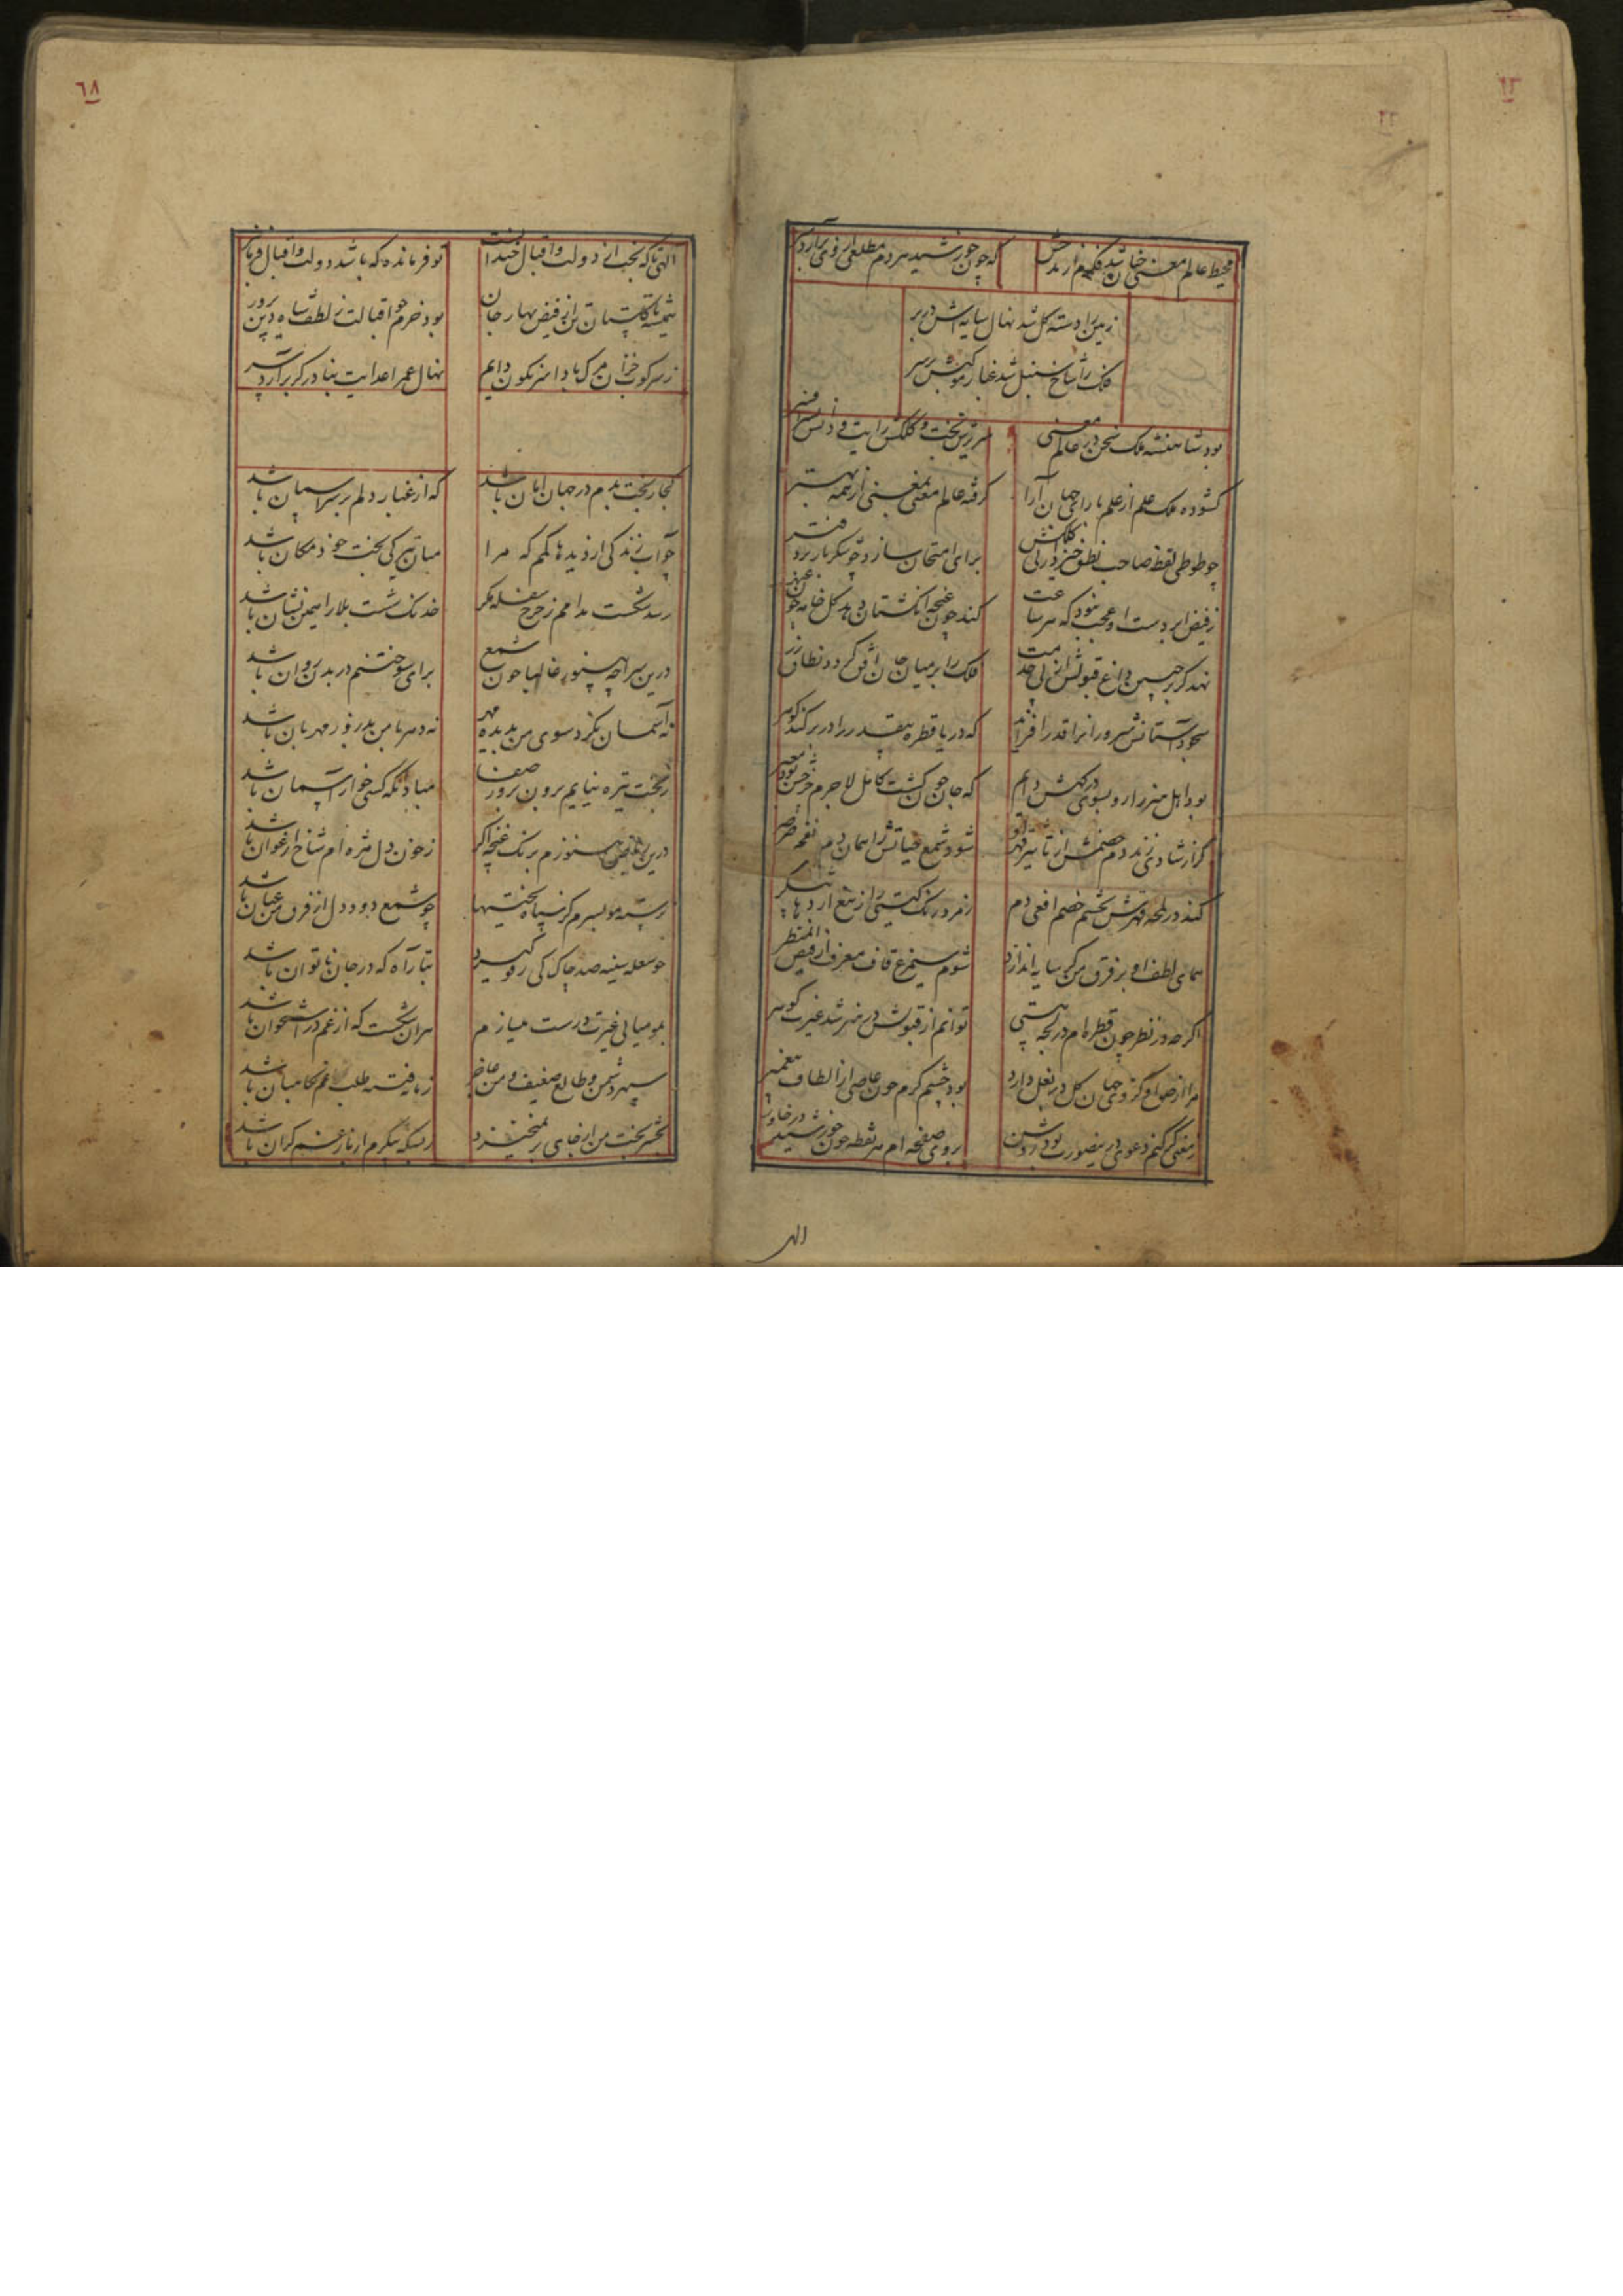 ٦٨
محیط عالم معنی خان شد
که چون خورشید هر دم مطلعی از وی برآرد
زمین را دسته گل شد نهال سایه اش در بر
فلک را شاخ سنبل شد غبار موکبش بر سر
بود شاهنشه ملک سخن در عالم معنی
سریرش تخت و کلکش رایت و
کشوده ملک علم از علم با رای جهان آرا
گرفته عالم معنی از همه بهتر
چو طوطی لفظ صاحب نطق خیزد از نی کلکش
برای امتحان سازد چو شکر بار بر دفتر
ز فیض ابر دست او عجب نبود که هر ساعت
کند چون غنچه انگشتان دهد گل خامه چون
نهد گر بر جبین داغ قبولش از پی خدمت
فلک را بر میان جان افق گردد نطاق زر
سجود آستانش سرورانرا قدر افزاید
که دریا قطره بیقدر را در بر کند گوهر
بود اهل هنر را رو بسوی درگهش دایم
که جان چون گشت کامل لاجرم
گر از شادی زند دم خصمش از تاثیر قهر او
شود شمع حیاتش را همان دم نفحه صرصر
کند در لمحه قهرش بچشم خصم افعی دم
زمرد رنگ گیتی را ز تیغ اژدها پیکر
همای لطف او بر فرق من گر سایه اندازد
شوم سیمرغ قاف معرفت از فیض
اگر چه در نظر چون قطره ام در لجه هستی
توانم از قبولش در هنر شد غیرت گوهر
مرا از جهان گل در بغل دارد
بود چشم کرم چون عاصی از الطاف پیغمبر
ز معنی گر کنم دعوی درین صورت بود روشن
بروی صفحه ام هر نقطه چون خورشید در خاور
الهی
الهی تا که تخت از دولت و اقبال
تو فرمانده که باشد دولت و اقبال
همیشه تا گلستان تن از فیض بهار جان
بود خرم چو اقبالت ز لطف شاه دین پرور
ز سرکوب خزان مرگ بادا سرنگون دایم
نهال عمر اعدایت بنا در گر برآرد سر
کجا ز بخت بدم در جهان امان باشد
که از غبار دلم بر سر آسمان باشد
چو آب زندگی از دیدها گمم که مرا
مباد تیرگی بخت خود مکان باشد
رسد شکست مدامم ز چرخ سفله مگر
خدنگ شست بلا را همین نشان باشد
درین سراچه هنوزم غالبا چون شمع
برای سوختنم در بدن روان باشد
نه آسمان نگرد سوی من بدیده مهر
نه دهر با من بدروز مهربان باشد
ز بخت تیره نیایم برون بروز صفا
مباد آنکه کسی خوار آسمان باشد
درین ریاض هنوزم برنگ غنچه اگر
ز خون دل مژه ام شاخ ارغوان باشد
رسته مو بسرم کز سیاه بختیها
چو شمع دود دل از فرق من عیان باشد
چو شعله سینه صد چاک کی رفو گیرد
بتار آه که در جان ناتوان باشد
بمومیایی غیرت درست میسازم
هر آن شکست که از غم در استخوان باشد
سپهر دشمن و طالع ضعیف و من عاجز
زمانه فتنه طلب غم نگاهبان باشد
بحشر بخت من از جای بر نمیخیزد
ز بسکه پیکرم از بار غم گران باشد